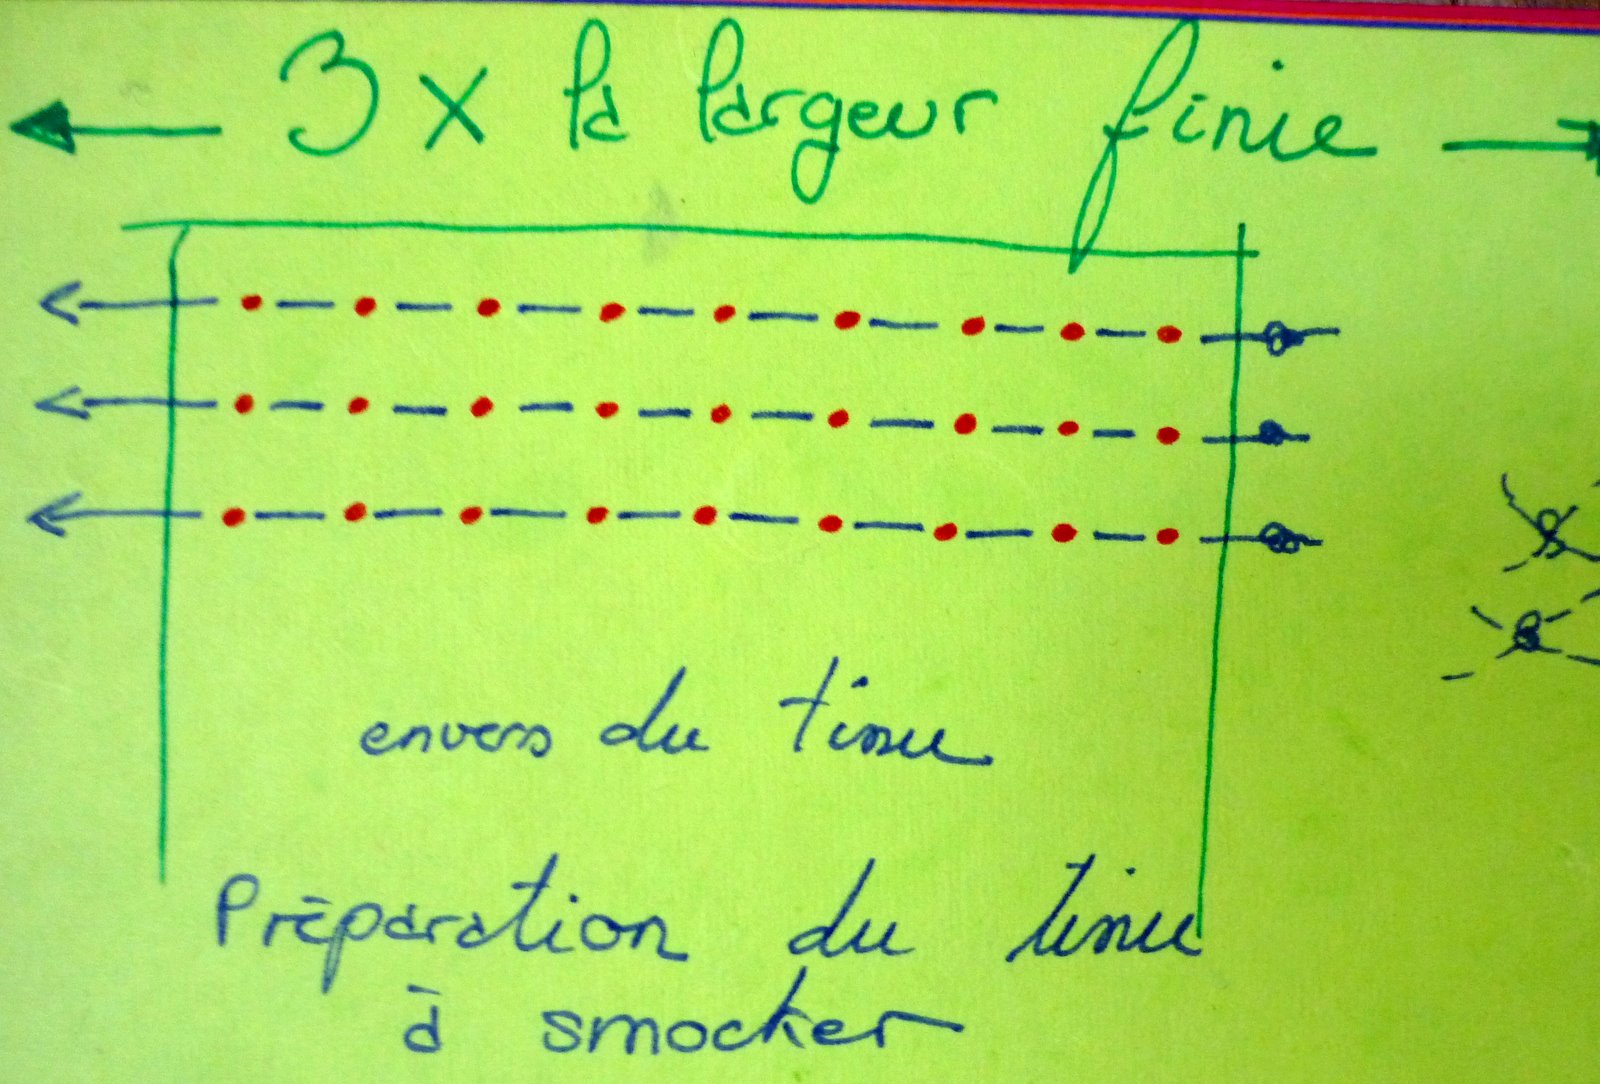 3 x la largeur finie
envers du tissu
Préparation du tissu
à smocker